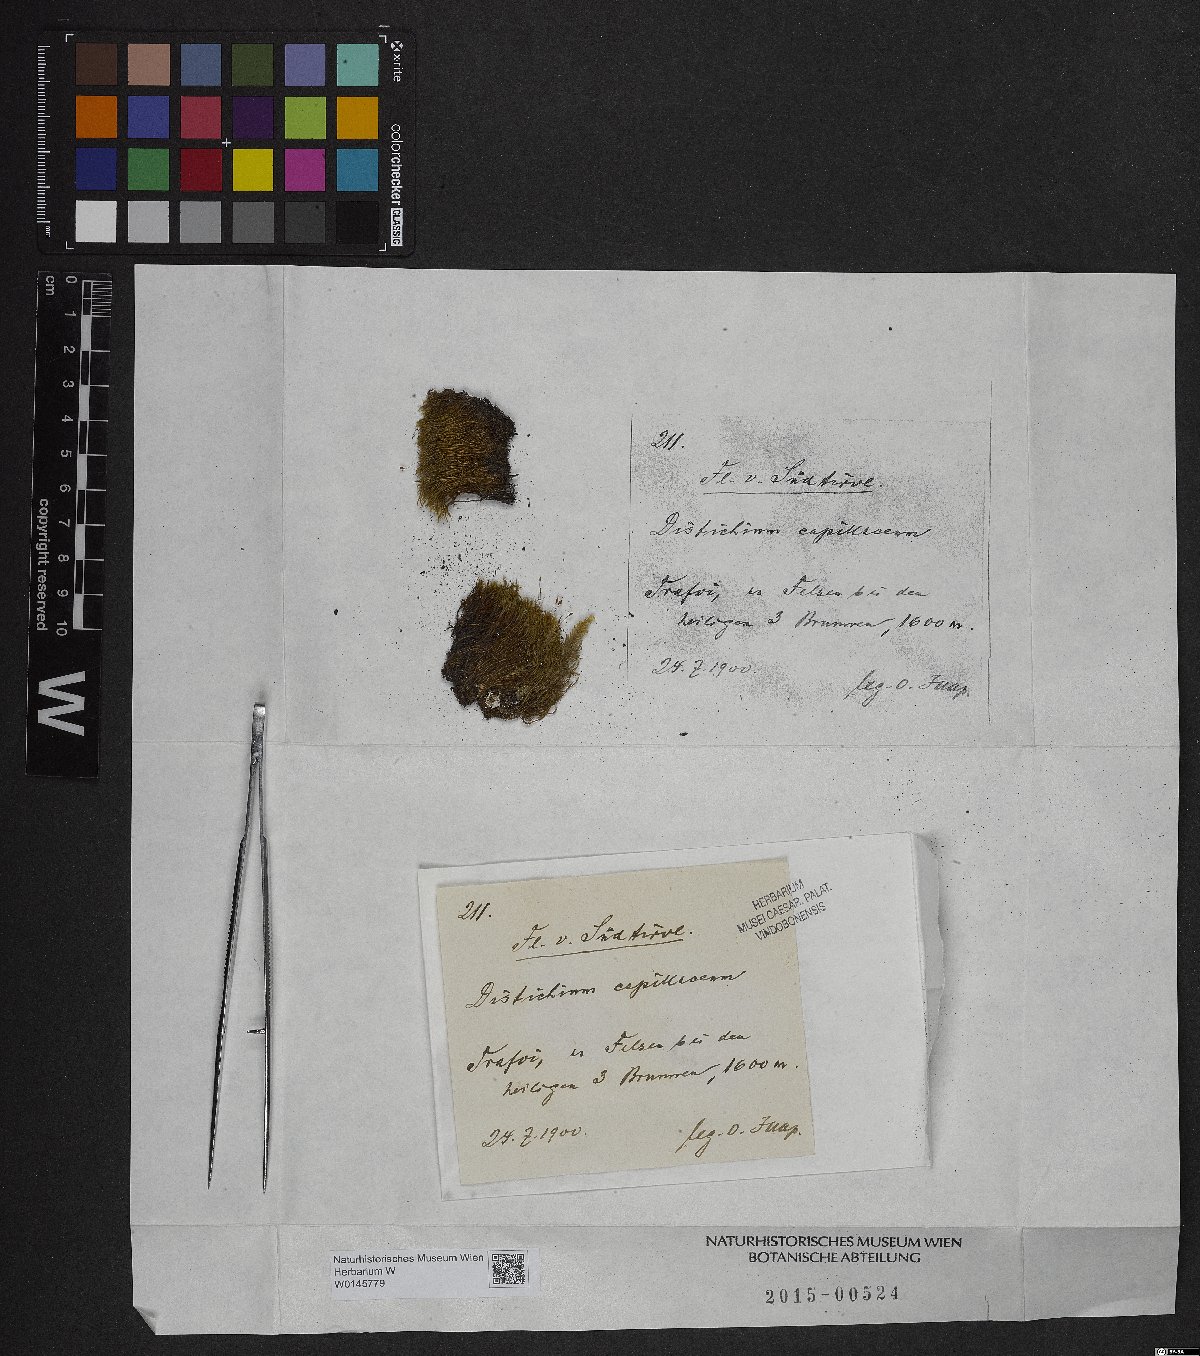 x-rite
colorchecker
CLASSIC
mm
cm
0
1
2
3
4
5
6
7
8
9
10
copyright reserved
W
211.
Fl. v. Südtirol.
Distichium capillaceum
Trafoi, an Felsen bei den
heiligen 3 Brunnen, 1600 m.
24. 7. 1900.
leg. O.
211.
Fl. v. Südtirol.
Distichium capillaceum
Trafoi, an Felsen bei den
heiligen 3 Brunnen, 1600 m.
24. 7. 1900.
leg. O.
HERBARIUM
MUSEI CAESAR. PALAT.
VINDOBONENSIS
Naturhistorisches Museum Wien
Herbarium W
W0145779
NATURHISTORISCHES MUSEUM WIEN
BOTANISCHE ABTEILUNG
2015-00524